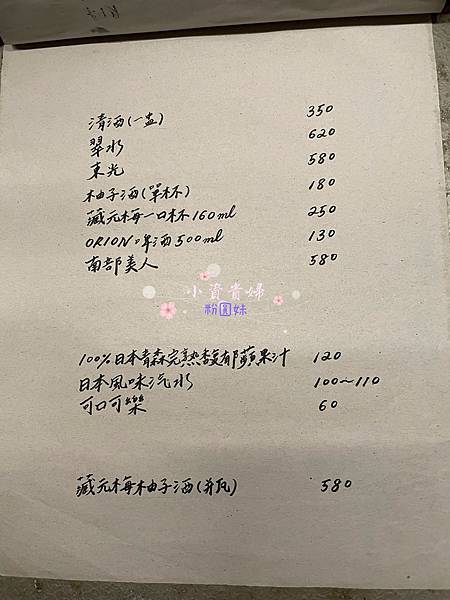 清酒(一壺) 350
翠水 620
東光 580
柚子酒(單杯) 180
藏元梅一口杯160ml 250
ORION啤酒500ml 130
南部美人 580
小資貴婦
粉圓妹
100%日本青森完熟馥郁蘋果汁 120
日本風味汽水 100~110
可口可樂 60
藏元梅柚子酒(瓶) 580